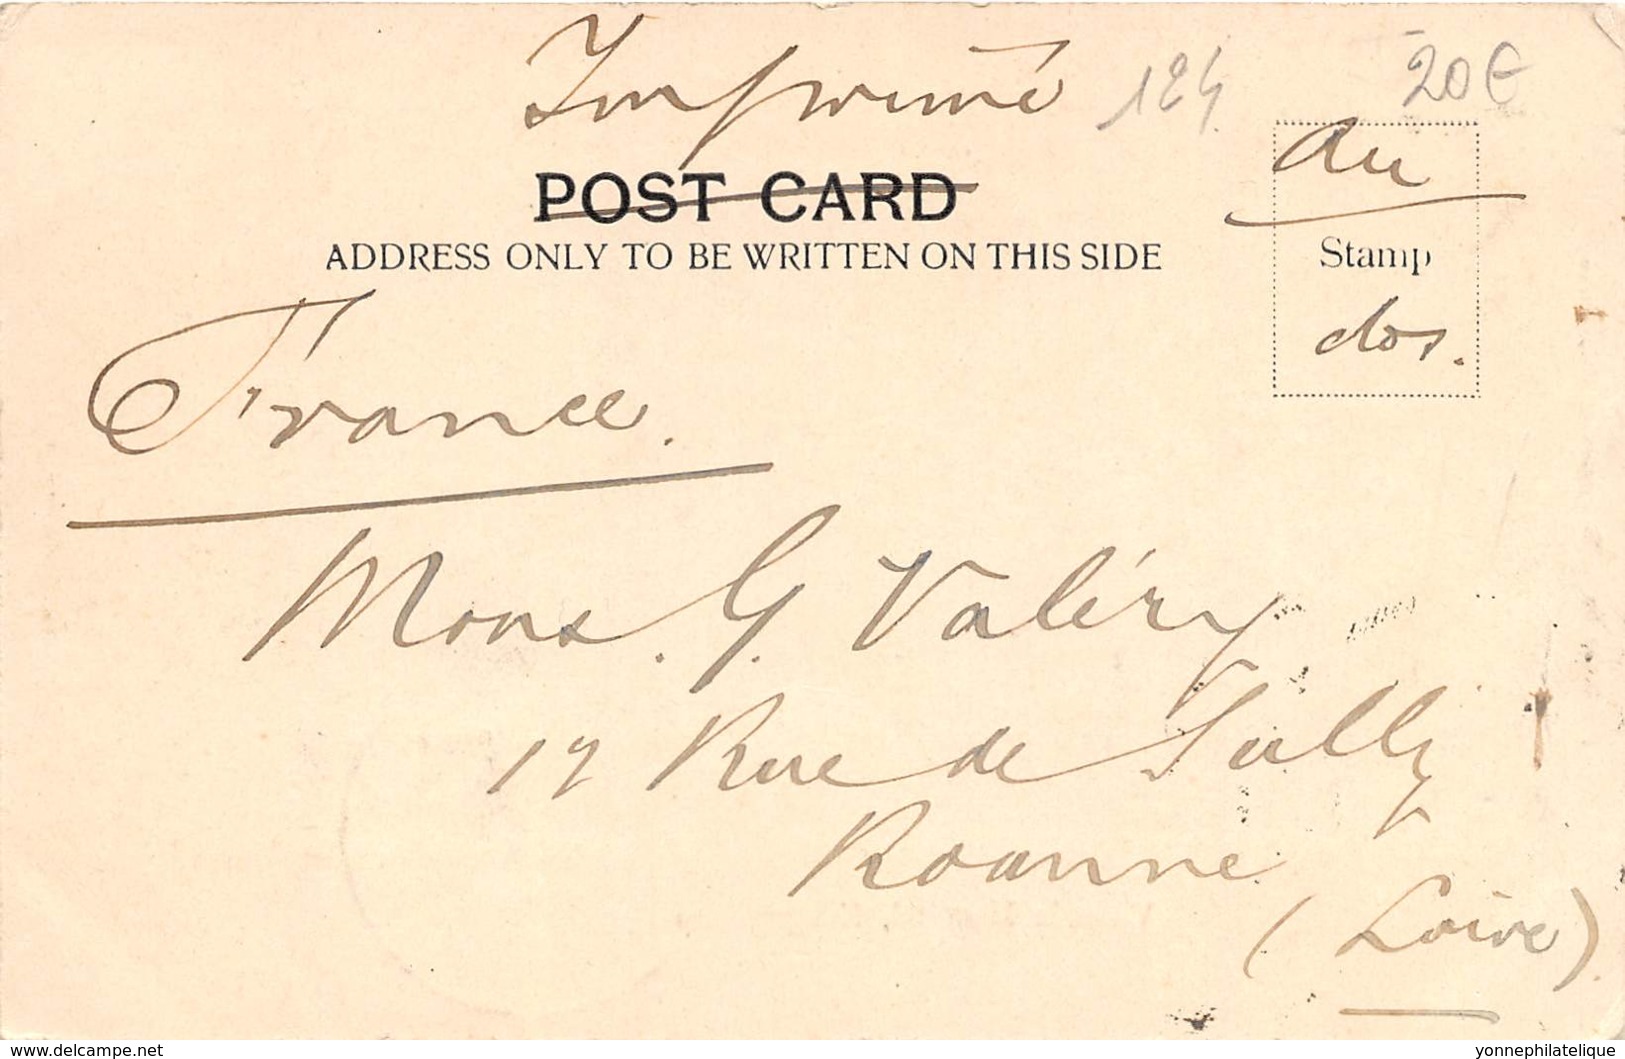 Imprimé
124
20€
Au
POST CARD
ADDRESS ONLY TO BE WRITTEN ON THIS SIDE
Stamp
dos.
France.
Mons. G. Valéry
17 Rue de Sully
Roanne
(Loire).
www.delcampe.net
yonnephilatelique